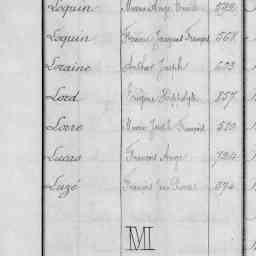 Loquin Marie Ange Emile 592
Loquin François 568
Loraine Arthur Joseph 623
Lord Eugène Hippolyte 857
Lorre Marie Joseph François 520
Lucas François Ange 724
Luzé François 874
M